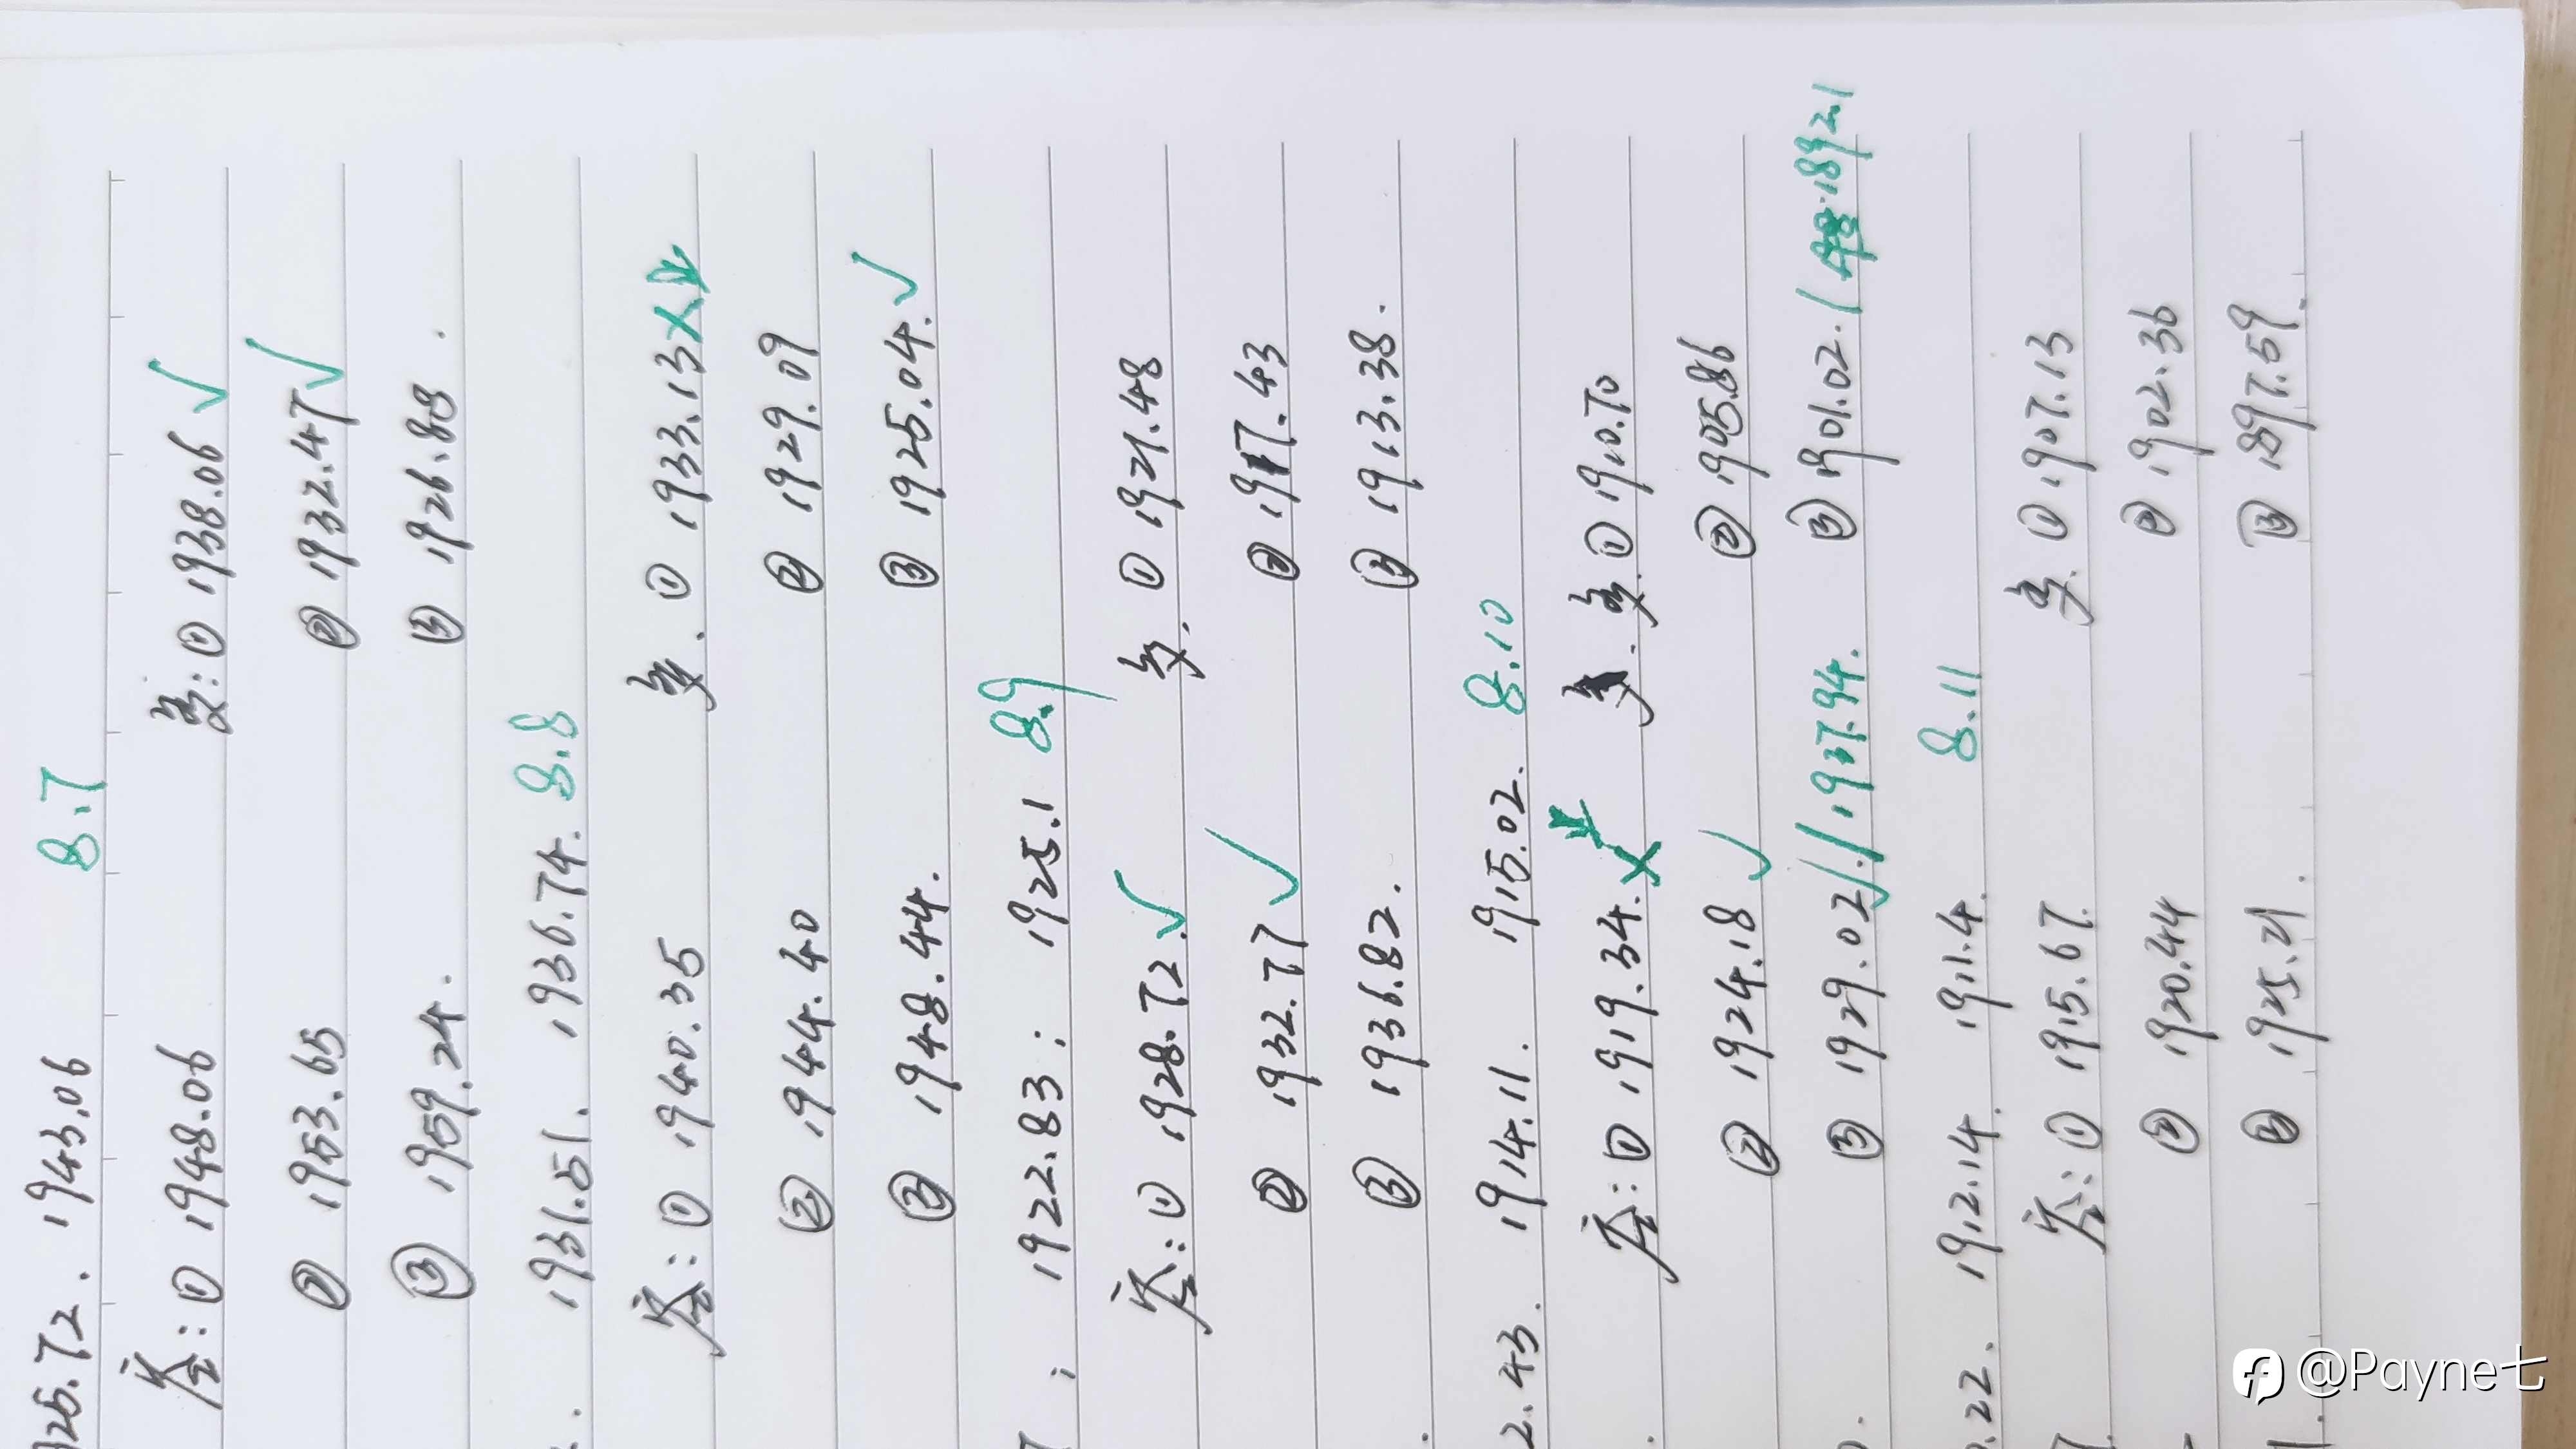 25.72. 1943.06 8.7
空:① 1948.06 多:① 1938.06 ✓
② 1953.65 ② 1932.47 ✓
③ 1959.24. ③ 1926.88.
1931.51. 1936.74. 8.8
空:① 1940.35 多.① 1933.13 ×
② 1944.40 ② 1929.09
③ 1948.44. ③ 1925.04. ✓
; 1922.83; 1925.1 8.9
空:① 1928.72. ✓ 多.① 1921.48
② 1932.77 ✓ ② 1917.43
③ 1936.82. ③ 1913.38.
2.43. 1914.11. 1915.02. 8.10
空:① 1919.34. × 多.① 1910.70
② 1924.18 ✓ ② 1905.86
③ 1929.02 ✓./1937.94. ③ 1901.02./ 1892.1
.22. 1912.14. 1911.4. 8.11
空:① 1915.67. 多.① 1907.13
② 1920.44 ② 1902.36
③ 1925.21. ③ 1897.59.
@Payne七